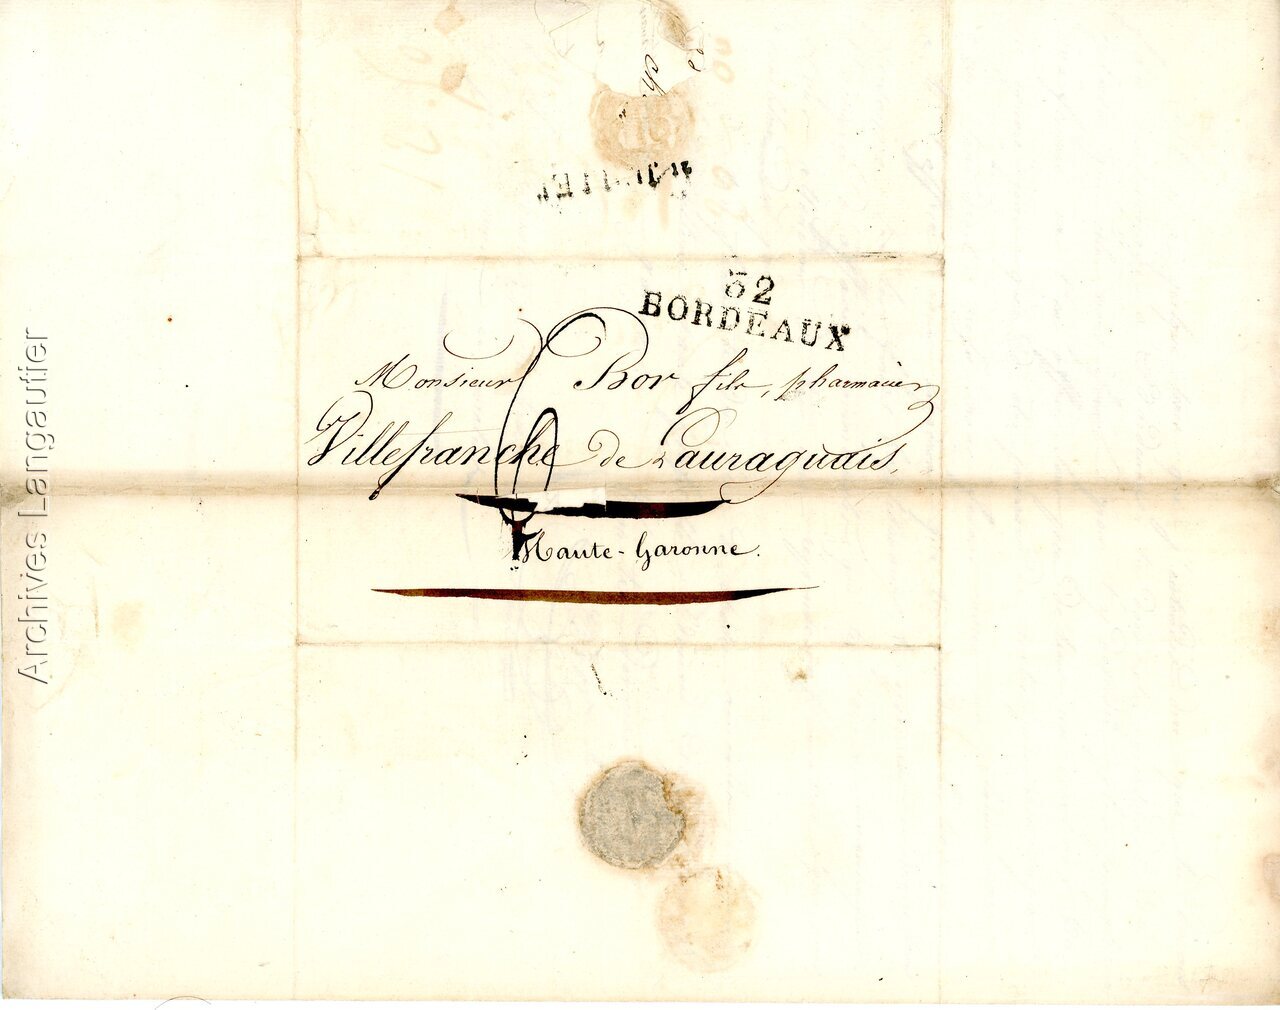 32
BORDEAUX
Monsieur Bor fils, pharmacien
Villefranche de Lauraguais,
Haute-Garonne.
Archives Langautier